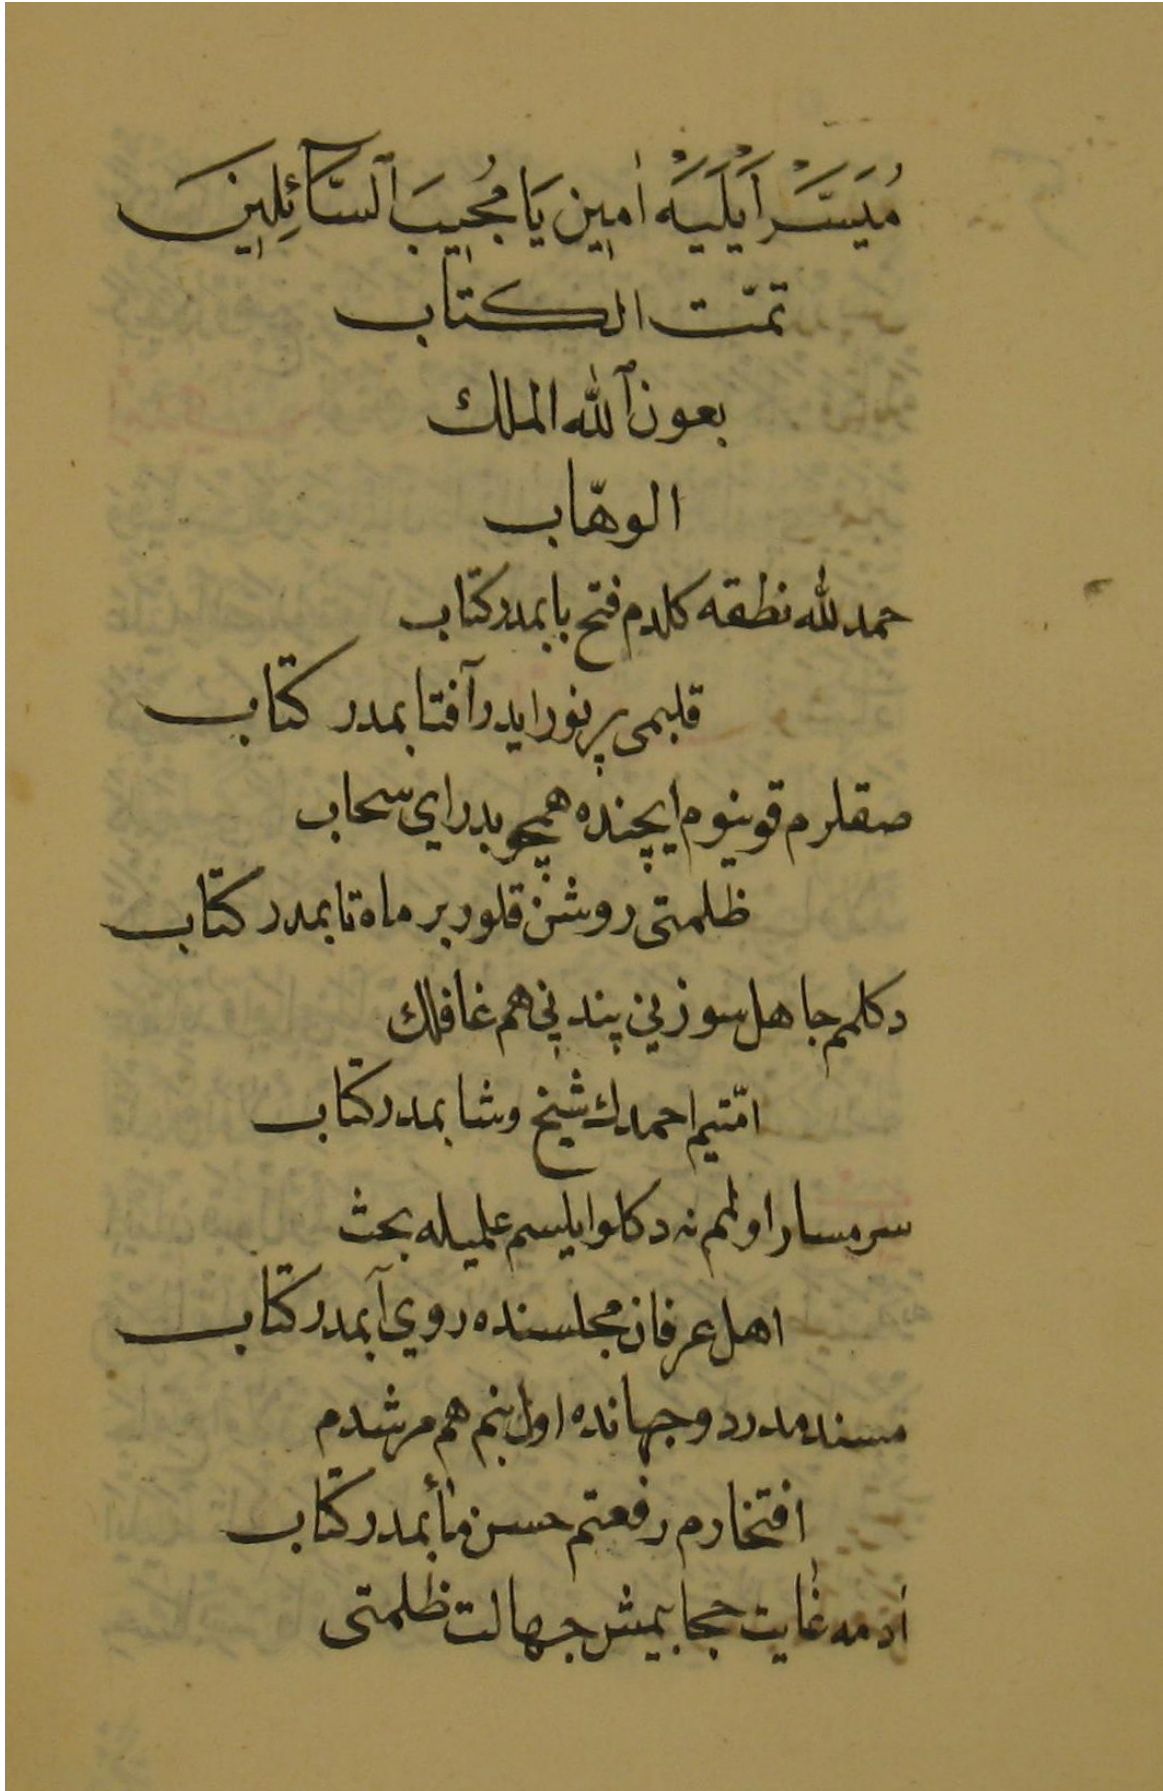 مُيَسَّرْ اَيْلَيَهْ اٰمٖين يَا مُجٖيبَ ٱلسَّآئِلٖينَ
تمّت الكتاب
بعون ٱللّٰه الملك
الوهّاب
حمد للّٰه نطقه كلدم فتح بابمدر كتاب
قلبمى پر نور ايدر آفتابمدر كتاب
صقلرم قوينوم ايچنده همچو بدراي سحاب
ظلمتى روشن قلور بر ماه تابمدر كتاب
دكلم جاهل سوزيني پندني هم غافلك
امّتيم احمدك شيخ وشابمدر كتاب
سرمسار اولمم نه دكلو ايلسم علميله بحث
اهل عرفان مجلسنده روي آبمدر كتاب
مسندمدر دو جهانده اول بنم هم مرشدم
افتخارم رفعتم حسن مأبمدر كتاب
ادمه غايت حجابيمش جهالت ظلمتى